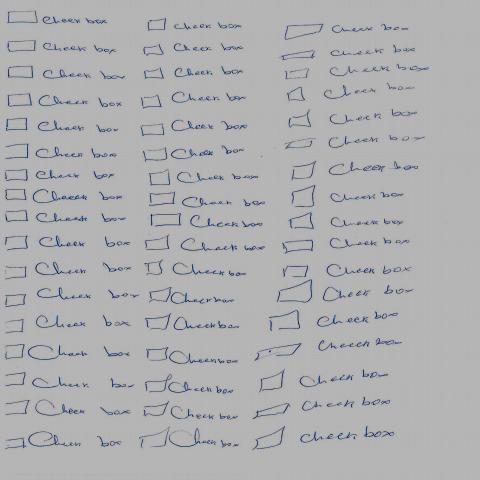 Check box
Check box
Check box
Check box
Check box
Check box
Check box
Check box
Check box
Check box
Check box
Check box
Check box
Check box
Check box
Check box
Check box
Check box
Check box
Check box
Check box
Check box
Check box
Check box
Check box
Check box
Check box
Check box
Check box
Check box
Check box
Check box
Check box
Check box
Check box
Check box
Check box
Check box
Check box
Check box
Check box
Check box
Check box
Check box
Check box
Check box
Check box
Check box
Check box
Check box
Check box